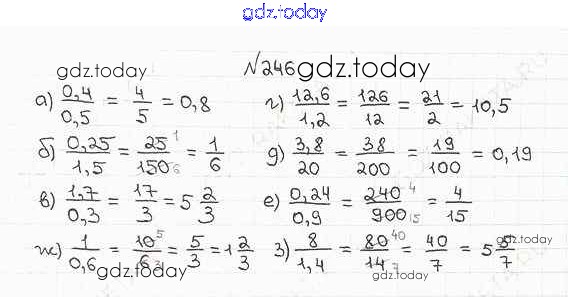 gdz.today
gdz.today
№246 gdz.today
а) 0,4/0,5 = 4/5 = 0,8
г) 12,6/1,2 = 126/12 = 21/2 = 10,5
б) 0,25/1,5 = 25 1/150 6 = 1/6
д) 3,8/20 = 38/200 = 19/100 = 0,19
в) 1,7/0,3 = 17/3 = 5 2/3
е) 0,24/0,9 = 240 4/900 15 = 4/15
ж) 1/0,6 = 10 5/6 3 = 5/3 = 1 2/3
з) 8/1,4 = 80 40/14 7 = 40/7 = 5 5/7
gdz.today
gdz.today